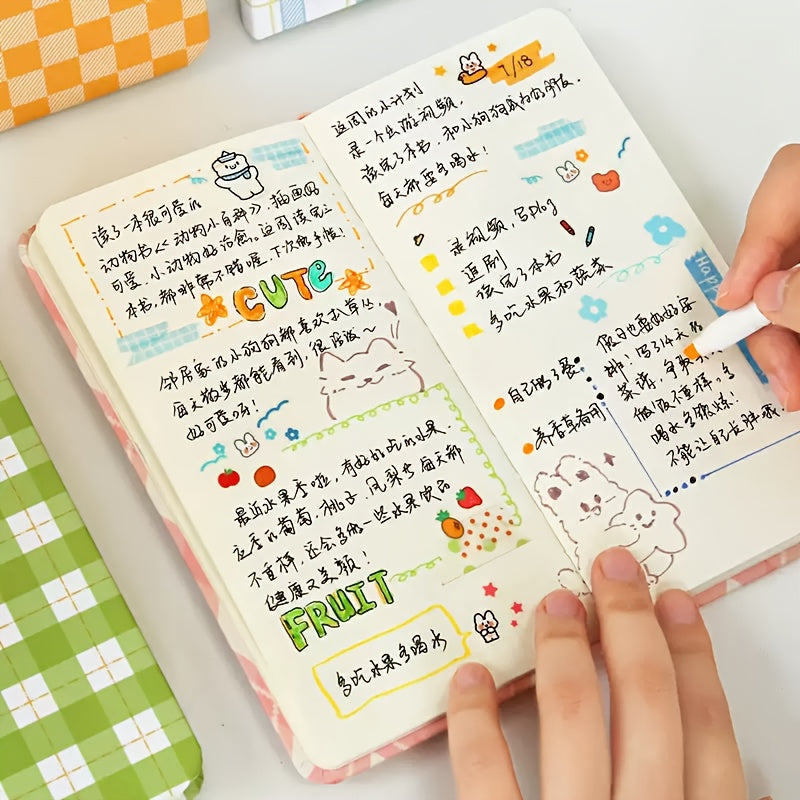 读了一本很可爱的
动物书《动物小百科》，插画好
可爱，小动物好治愈。这周读完三
本书，都非常不错喔，下次做手帐！
CUTE
邻居家的小狗狗都喜欢扒草丛，
每天散步都能看到，很活泼～
好可爱呀！
最近水果季啦，有好好吃的水果。
应季的葡萄、桃子、凤梨书每天都
不重样，还会多做一些水果饮品
健康又美颜！
FRUIT
多吃水果多喝水
7/18
这周的小计划
是一个出游视频，
读完3本书，和小狗狗成为好朋友。
每天都要多喝水！
录视频，写plog
追剧
读完3本书
多吃水果和蔬菜
Happ
自己的3餐
养香草备用
假日也要好好安
排！写了14天的
菜谱，争取
做饭不重样，多
喝水多锻炼！
不能让自己长胖哦